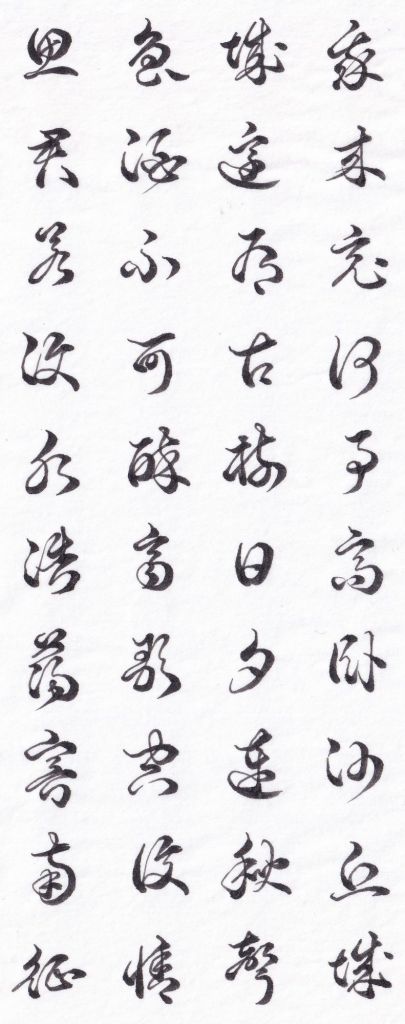 我來竟何事高臥沙丘城
城邊有古樹日夕連秋聲
魯酒不可醉齊歌空復情
思君若汶水浩蕩寄南征